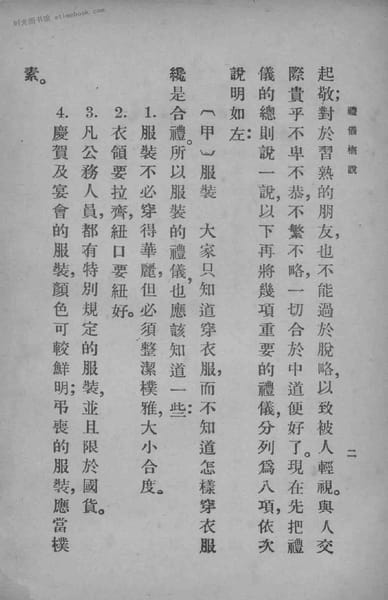 时光图书馆 etimebook.com
禮儀概說
二
起敬;對於習熟的朋友,也不能過於脫略,以致被人輕視。與人交
際貴乎不卑不恭,不繁不略,一切合於中道便好了。現在先把禮
儀的總則說一說,以下再將幾項重要的禮儀,分列爲八項,依次
說明如左:
〔甲〕服裝 大家只知道穿衣服,而不知道怎樣穿衣服
纔是合禮。所以服裝的禮儀,也應該知道一些:
1. 服裝不必穿得華麗,但必須整潔樸雅,大小合度。
2. 衣領要拉齊,紐口要紐好。
3. 凡公務人員,都有特別規定的服裝,並且限於國貨。
4. 慶賀及宴會的服裝,顏色可較鮮明;弔喪的服裝,應當樸
素。